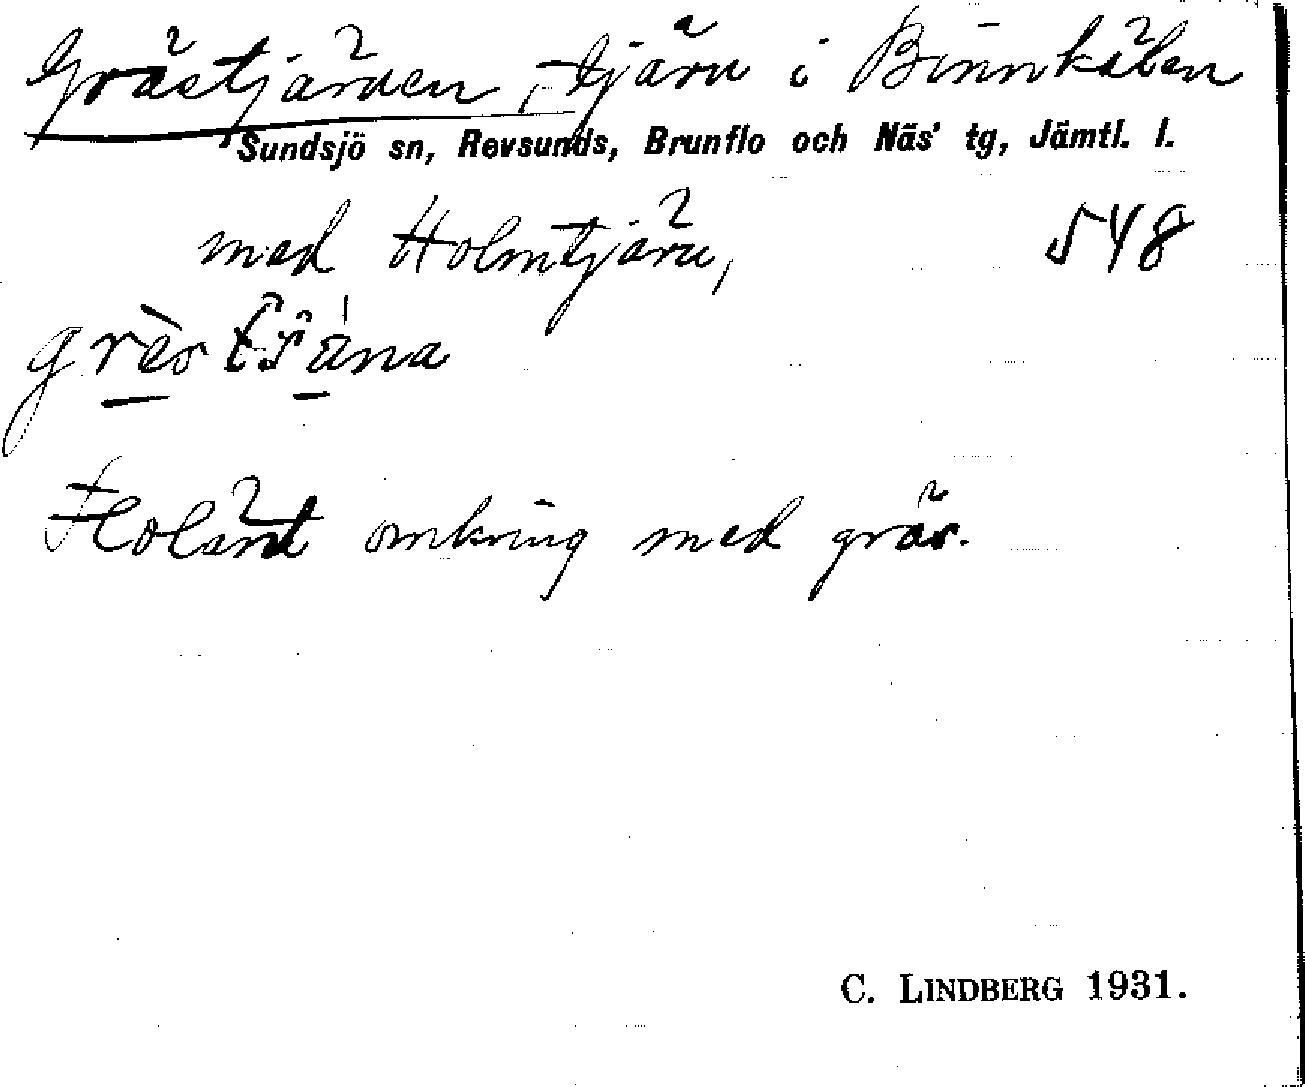 Grästjärnen, tjärn i Binnkälen
Sundsjö sn, Revsunds, Brunflo och Näs' tg, Jämtl. l.
med Holmtjärn, 548
Floländt omkring med gräs.
C. LINDBERG 1931.